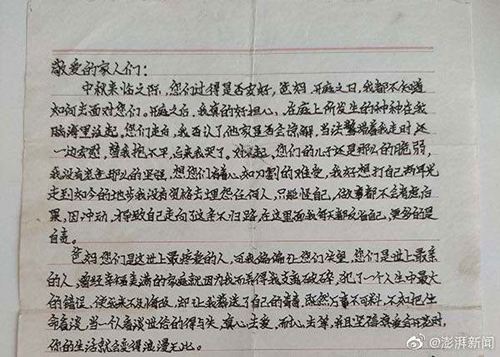 敬爱的家人们:
中秋来临之际,您们过得是否安好,爸妈,开庭之日,我都不知道
如何去面对您们。开庭之后,我真的好担心,在庭上所发生的种种在我
脑海里泛起。您们走向
求谅解,当法警揣着我走时还
一边安慰,替我
后来我哭了。对不起,您们的儿子还是那么的脆弱,
我没有
那么的坚强,想您们
心如刀割的难受,我好想打自己两耳光
走到如今的地步我没有资格去埋怨任何人,只能怪自己,做事都不会考虑后
果,因冲动,才导致自己走向了这条不归路,在这里面我每天都反省自己,更多的是
自责。
爸妈您们是这世上最疼爱的人,可我偏偏让您们失望,您们是世上最亲
的人,曾经幸福美满的家庭就因为我而弄得我支离破碎,犯了一个人生中最大
的错误,使
却让我葬送了自己的青春,既然万事不可料,不如把生
命看淡,当一个人看淡世俗的得与失,真心去爱,而心去
,并且坚信真爱会开花时,
你的生活就会变得浪漫无比。
@澎湃新闻